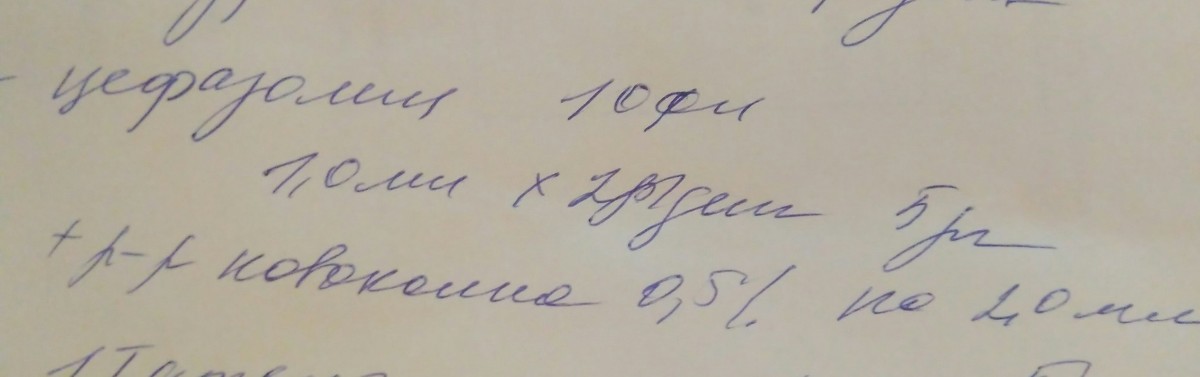 - цефазолин 10фл
1,0 мл х 2р/день 5дн
+ р-р новокаина 0,5% по 2,0 мл